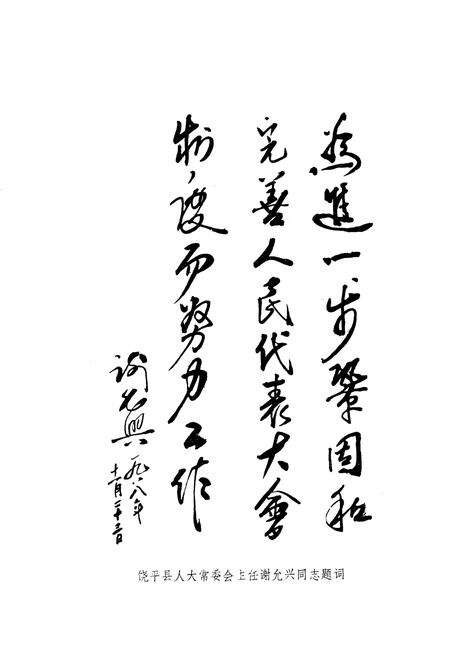 為進一步鞏固和
完善人民代表大會
制度而努力工作
谢允興
一九八八年
十一月
饶平县人大常委会主任谢允兴同志题词